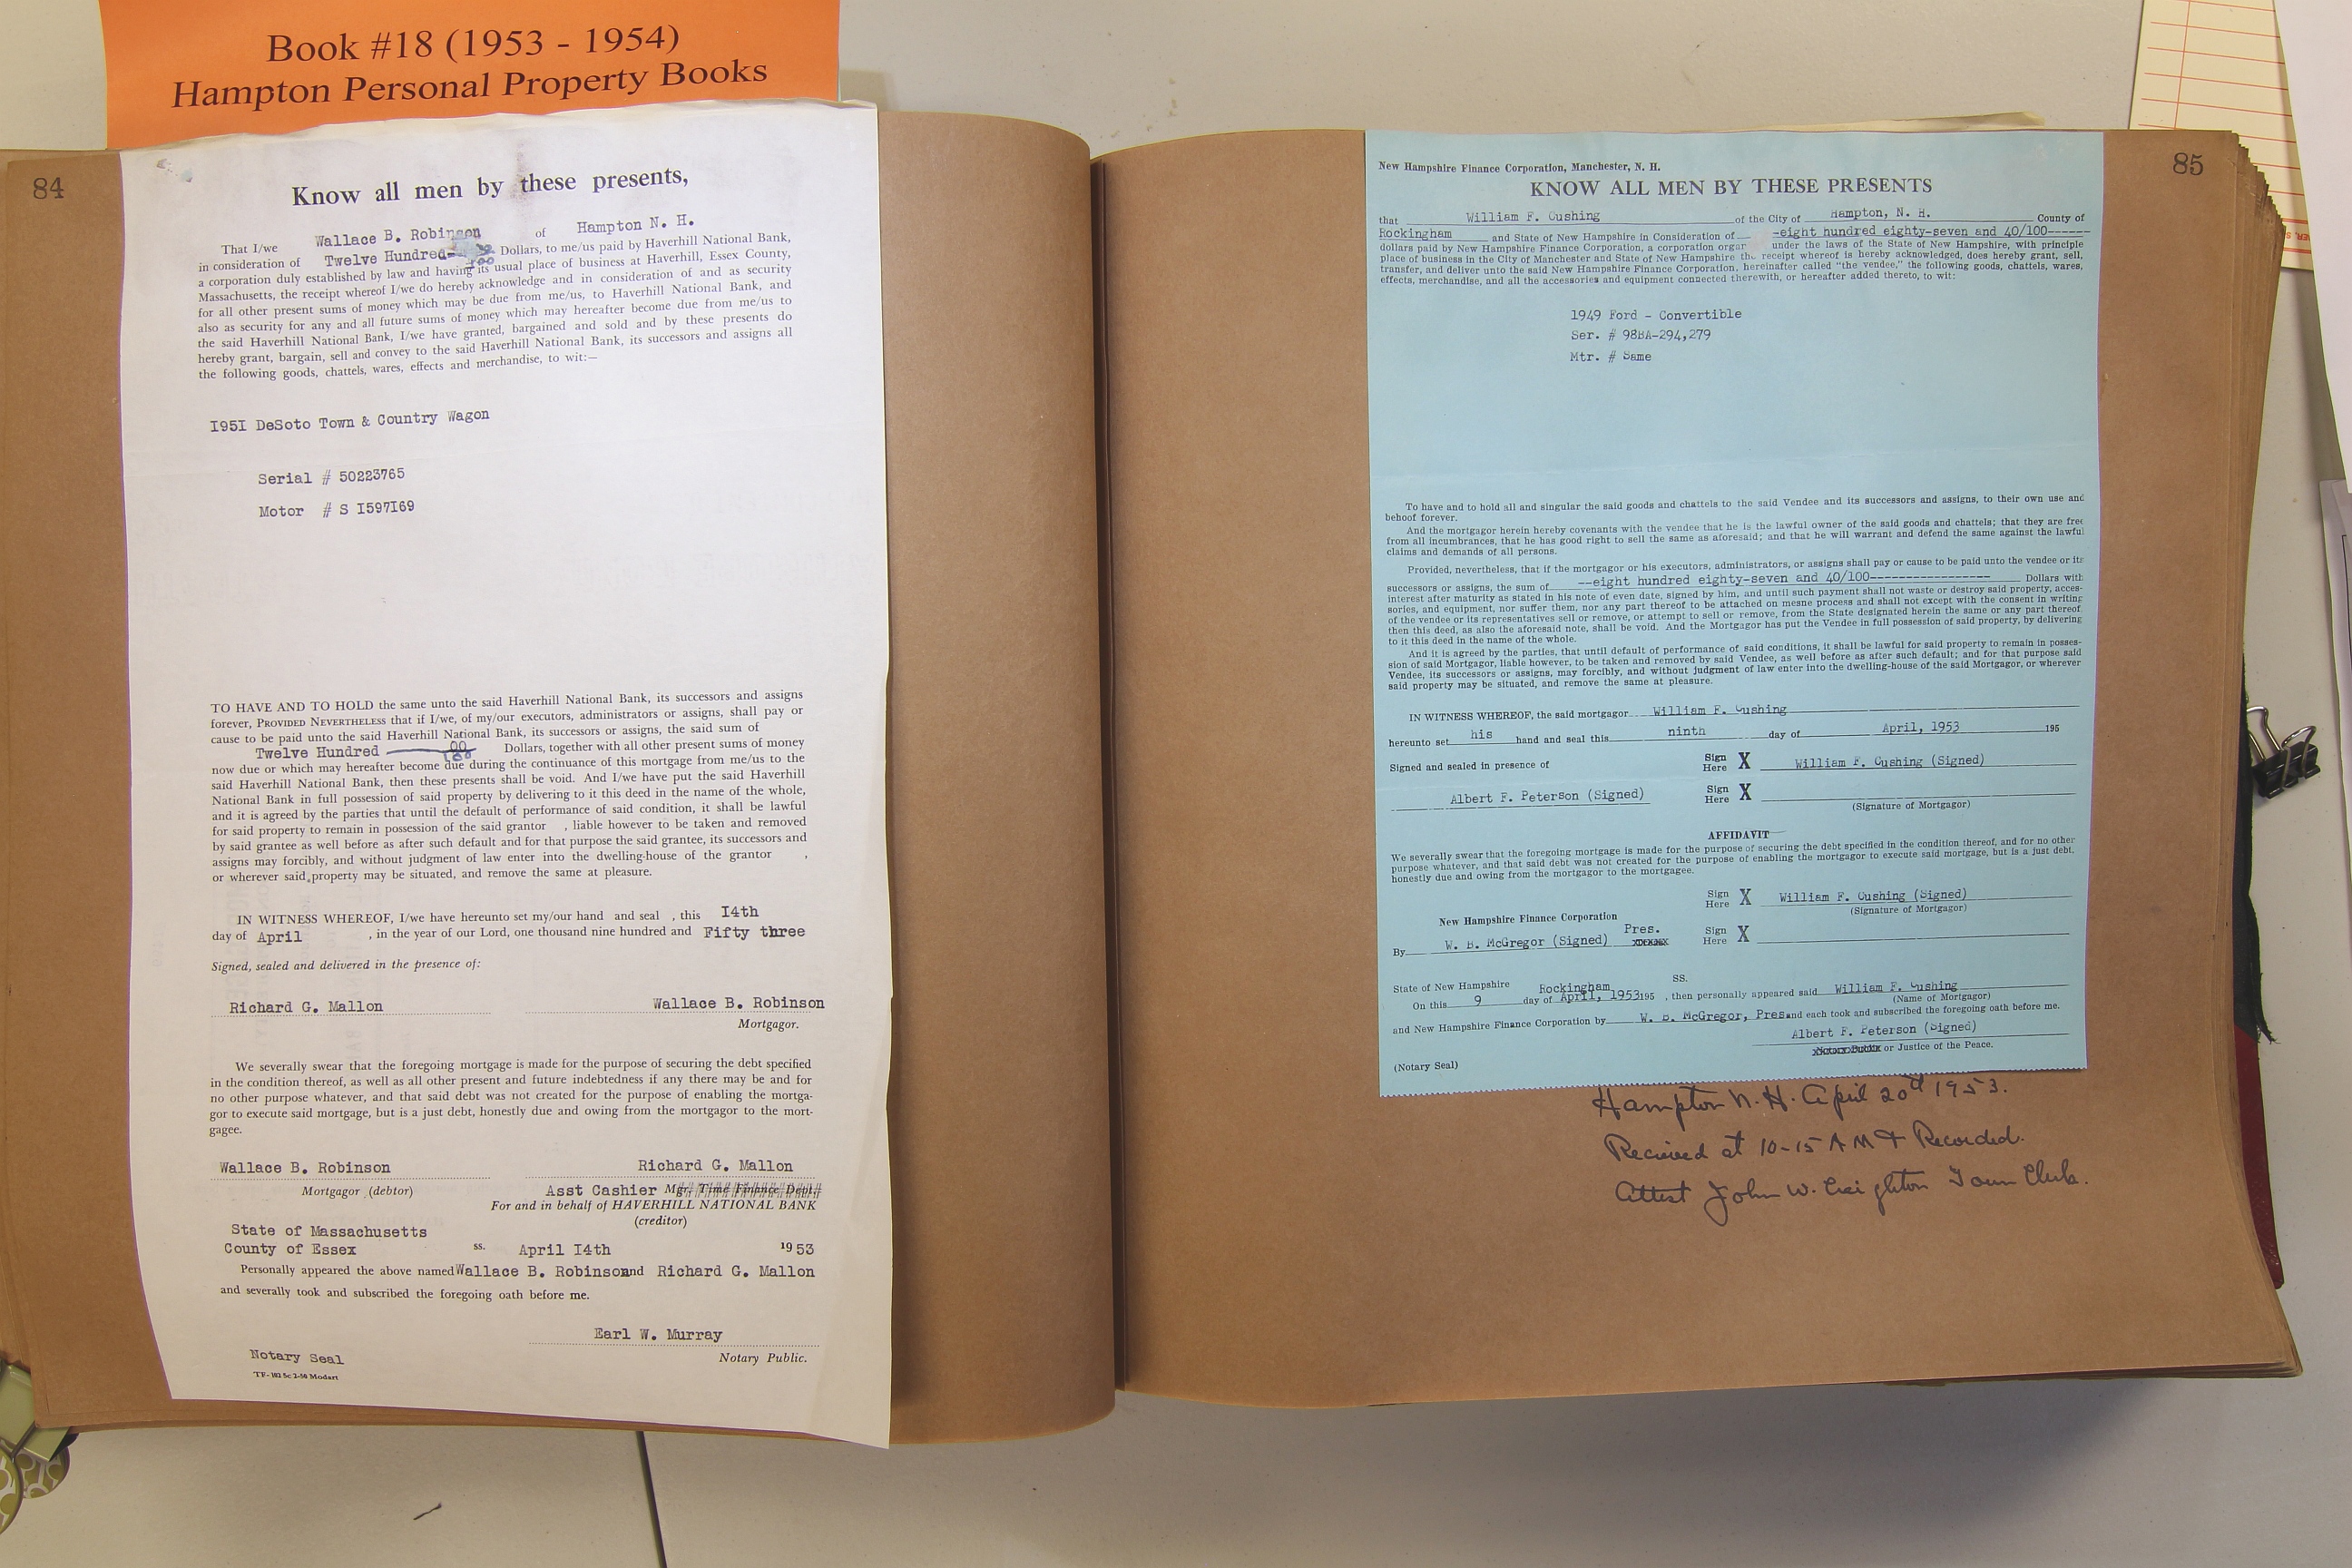 Book #18 (1953 - 1954)
Hampton Personal Property Books
84
Know all men by these presents,
That I/we Wallace B. Robinson of Hampton N. H.
in consideration of Twelve Hundred Dollars, to me/us paid by Haverhill National Bank,
a corporation duly established by law and having its usual place of business at Haverhill, Essex County,
Massachusetts, the receipt whereof I/we do hereby acknowledge and in consideration of and as security
for all other present sums of money which may be due from me/us, to Haverhill National Bank, and
also as security for any and all future sums of money which may hereafter become due from me/us to
the said Haverhill National Bank, I/we have granted, bargained and sold and by these presents do
hereby grant, bargain, sell and convey to the said Haverhill National Bank, its successors and assigns all
the following goods, chattels, wares, effects and merchandise, to wit:—
I95I DeSoto Town & Country Wagon
Serial # 50223765
Motor # S I597I69
TO HAVE AND TO HOLD the same unto the said Haverhill National Bank, its successors and assigns
forever, PROVIDED NEVERTHELESS that if I/we, of my/our executors, administrators or assigns, shall pay or
cause to be paid unto the said Haverhill National Bank, its successors or assigns, the said sum of
Twelve Hundred 00/100 Dollars, together with all other present sums of money
now due or which may hereafter become due during the continuance of this mortgage from me/us to the
said Haverhill National Bank, then these presents shall be void. And I/we have put the said Haverhill
National Bank in full possession of said property by delivering to it this deed in the name of the whole,
and it is agreed by the parties that until the default of performance of said condition, it shall be lawful
for said property to remain in possession of the said grantor , liable however to be taken and removed
by said grantee as well before as after such default and for that purpose the said grantee, its successors and
assigns may forcibly, and without judgment of law enter into the dwelling-house of the grantor ,
or wherever said property may be situated, and remove the same at pleasure.
IN WITNESS WHEREOF, I/we have hereunto set my/our hand and seal , this I4th
day of April , in the year of our Lord, one thousand nine hundred and Fifty three
Signed, sealed and delivered in the presence of:
Richard G. Mallon Wallace B. Robinson
Mortgagor.
We severally swear that the foregoing mortgage is made for the purpose of securing the debt specified
in the condition thereof, as well as all other present and future indebtedness if any there may be and for
no other purpose whatever, and that said debt was not created for the purpose of enabling the mortga-
gor to execute said mortgage, but is a just debt, honestly due and owing from the mortgagor to the mort-
gagee.
Wallace B. Robinson Richard G. Mallon
Mortgagor (debtor) Asst Cashier Mgr. Time Finance Dept.
For and in behalf of HAVERHILL NATIONAL BANK
(creditor)
State of Massachusetts
County of Essex ss. April I4th 1953
Personally appeared the above named Wallace B. Robinson and Richard G. Mallon
and severally took and subscribed the foregoing oath before me.
Earl W. Murray
Notary Public.
Notary Seal
TF-102 5c 2-50 Modart
85
New Hampshire Finance Corporation, Manchester, N. H.
KNOW ALL MEN BY THESE PRESENTS
that William F. Cushing of the City of Hampton, N. H. County of
Rockingham and State of New Hampshire in Consideration of -eight hundred eighty-seven and 40/100------
dollars paid by New Hampshire Finance Corporation, a corporation organ under the laws of the State of New Hampshire, with principle
place of business in the City of Manchester and State of New Hampshire the receipt whereof is hereby acknowledged, does hereby grant, sell,
transfer, and deliver unto the said New Hampshire Finance Corporation, hereinafter called "the vendee," the following goods, chattels, wares,
effects, merchandise, and all the accessories and equipment connected therewith, or hereafter added thereto, to wit:
1949 Ford - Convertible
Ser. # 98BA-294,279
Mtr. # Same
To have and to hold all and singular the said goods and chattels to the said Vendee and its successors and assigns, to their own use and
behoof forever.
And the mortgagor herein hereby covenants with the vendee that he is the lawful owner of the said goods and chattels; that they are free
from all incumbrances, that he has good right to sell the same as aforesaid; and that he will warrant and defend the same against the lawful
claims and demands of all persons.
Provided, nevertheless, that if the mortgagor or his executors, administrators, or assigns shall pay or cause to be paid unto the vendee or its
successors or assigns, the sum of --eight hundred eighty-seven and 40/100----------------- Dollars with
interest after maturity as stated in his note of even date, signed by him, and until such payment shall not waste or destroy said property, acces-
sories, and equipment, nor suffer them, nor any part thereof to be attached on mesne process and shall not except with the consent in writing
of the vendee or its representatives sell or remove, or attempt to sell or remove, from the State designated herein the same or any part thereof
then this deed, as also the aforesaid note, shall be void. And the Mortgagor has put the Vendee in full possession of said property, by delivering
to it this deed in the name of the whole.
And it is agreed by the parties, that until default of performance of said conditions, it shall be lawful for said property to remain in posses-
sion of said Mortgagor, liable however, to be taken and removed by said Vendee, as well before as after such default; and for that purpose said
Vendee, its successors or assigns, may forcibly, and without judgment of law enter into the dwelling-house of the said Mortgagor, or wherever
said property may be situated, and remove the same at pleasure.
IN WITNESS WHEREOF, the said mortgagor William F. Cushing
hereunto set his hand and seal this ninth day of April, 1953 195
Signed and sealed in presence of Sign Here X William F. Cushing (Signed)
Albert F. Peterson (Signed) Sign Here X
(Signature of Mortgagor)
AFFIDAVIT
We severally swear that the foregoing mortgage is made for the purpose of securing the debt specified in the condition thereof, and for no other
purpose whatever, and that said debt was not created for the purpose of enabling the mortgagor to execute said mortgage, but is a just debt,
honestly due and owing from the mortgagor to the mortgagee.
Sign Here X William F. Cushing (Signed)
(Signature of Mortgagor)
New Hampshire Finance Corporation
By W. B. McGregor (Signed) Pres. Sign Here X
State of New Hampshire Rockingham SS.
On this 9 day of April, 1953 195 , then personally appeared said William F. Cushing
(Name of Mortgagor)
and New Hampshire Finance Corporation by W. B. McGregor, Pres. and each took and subscribed the foregoing oath before me.
Albert F. Peterson (Signed)
Notary Public or Justice of the Peace.
(Notary Seal)
Hampton N. H. April 20th 1953.
Recieved at 10-15 A M & Recorded.
Attest John W. Creighton Town Clerk.